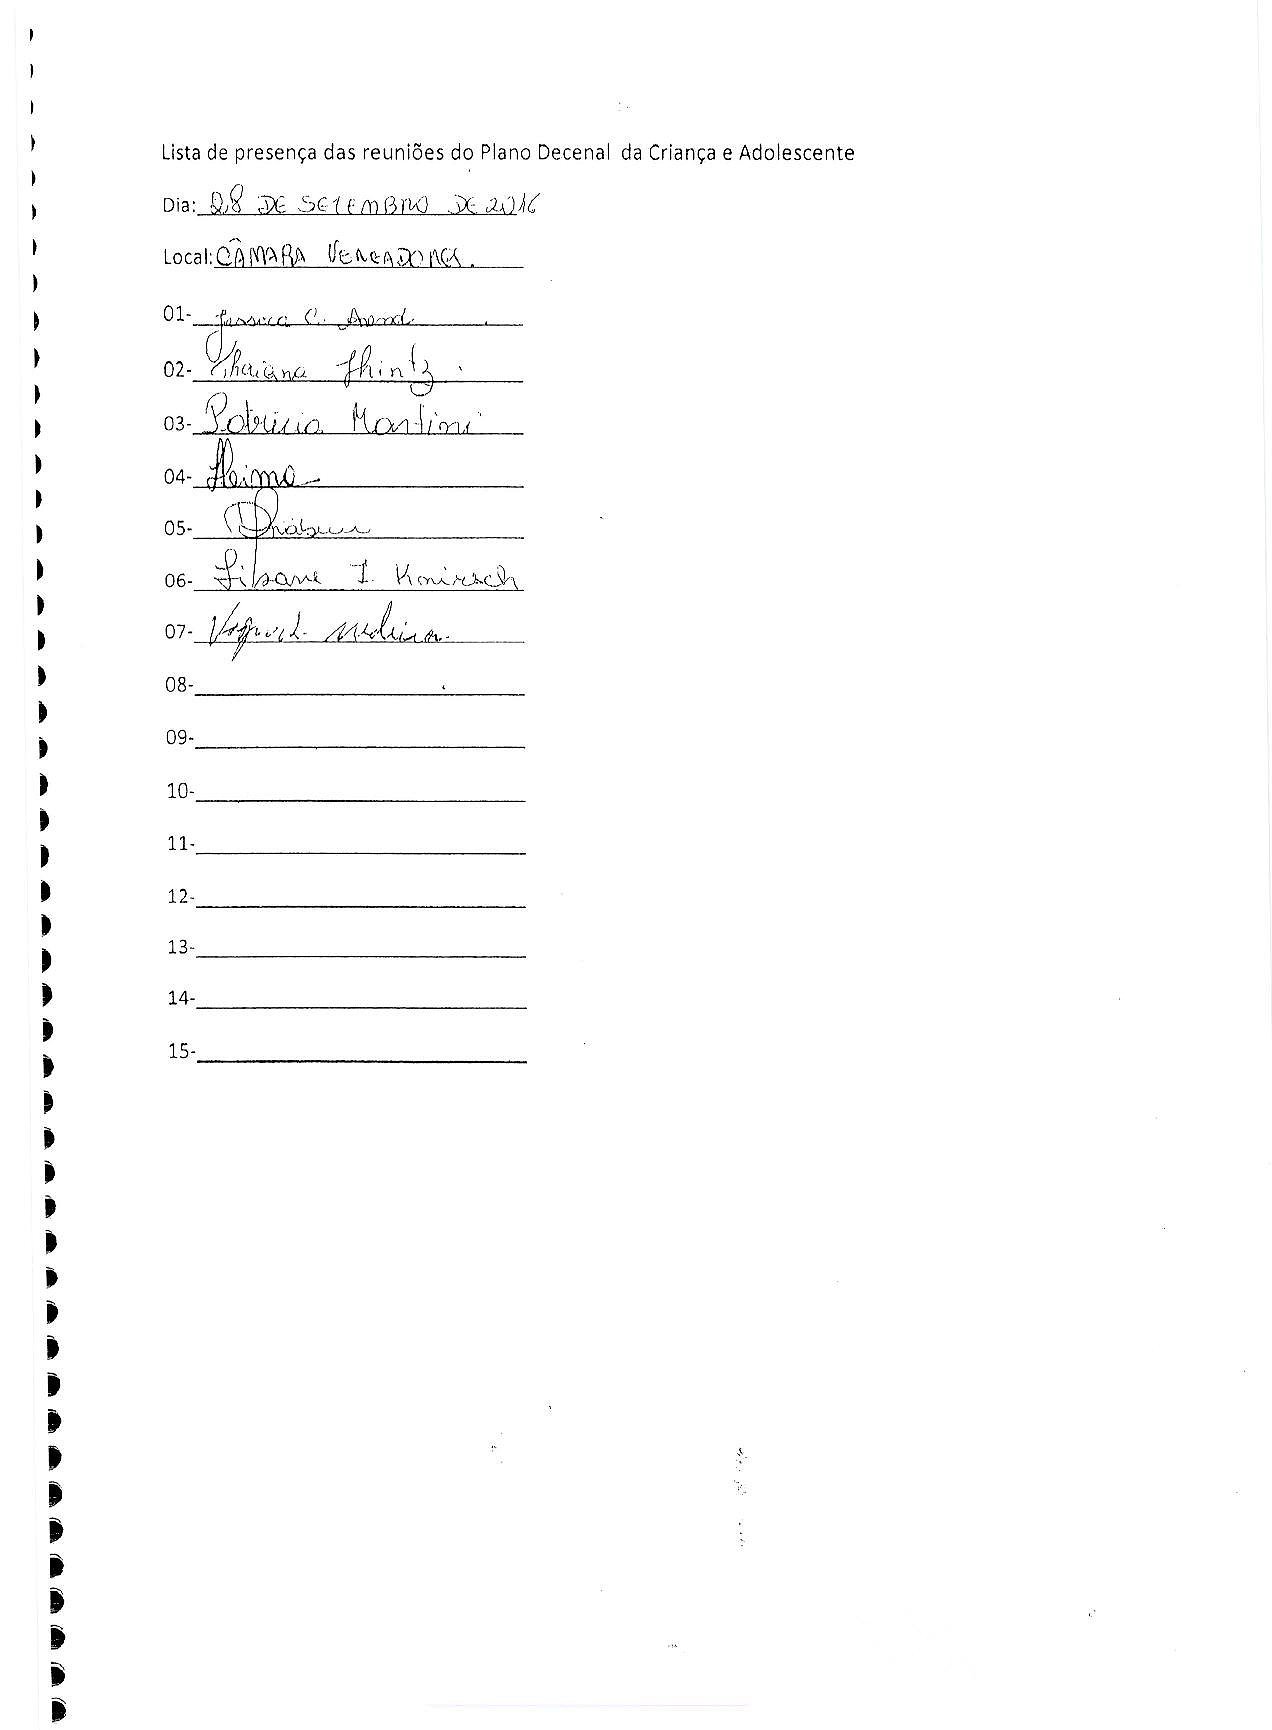 Lista de presença das reuniões do Plano Decenal da Criança e Adolescente
Dia: 28 DE SETEMBRO DE 2016
Local: CÂMARA VEREADORES.
01- C. Arend
02- Thaiana Hintz
03- Patricia Martini
04-
05-
06- Lisane I. Knirsch
07-
08-
09-
10-
11-
12-
13-
14-
15-